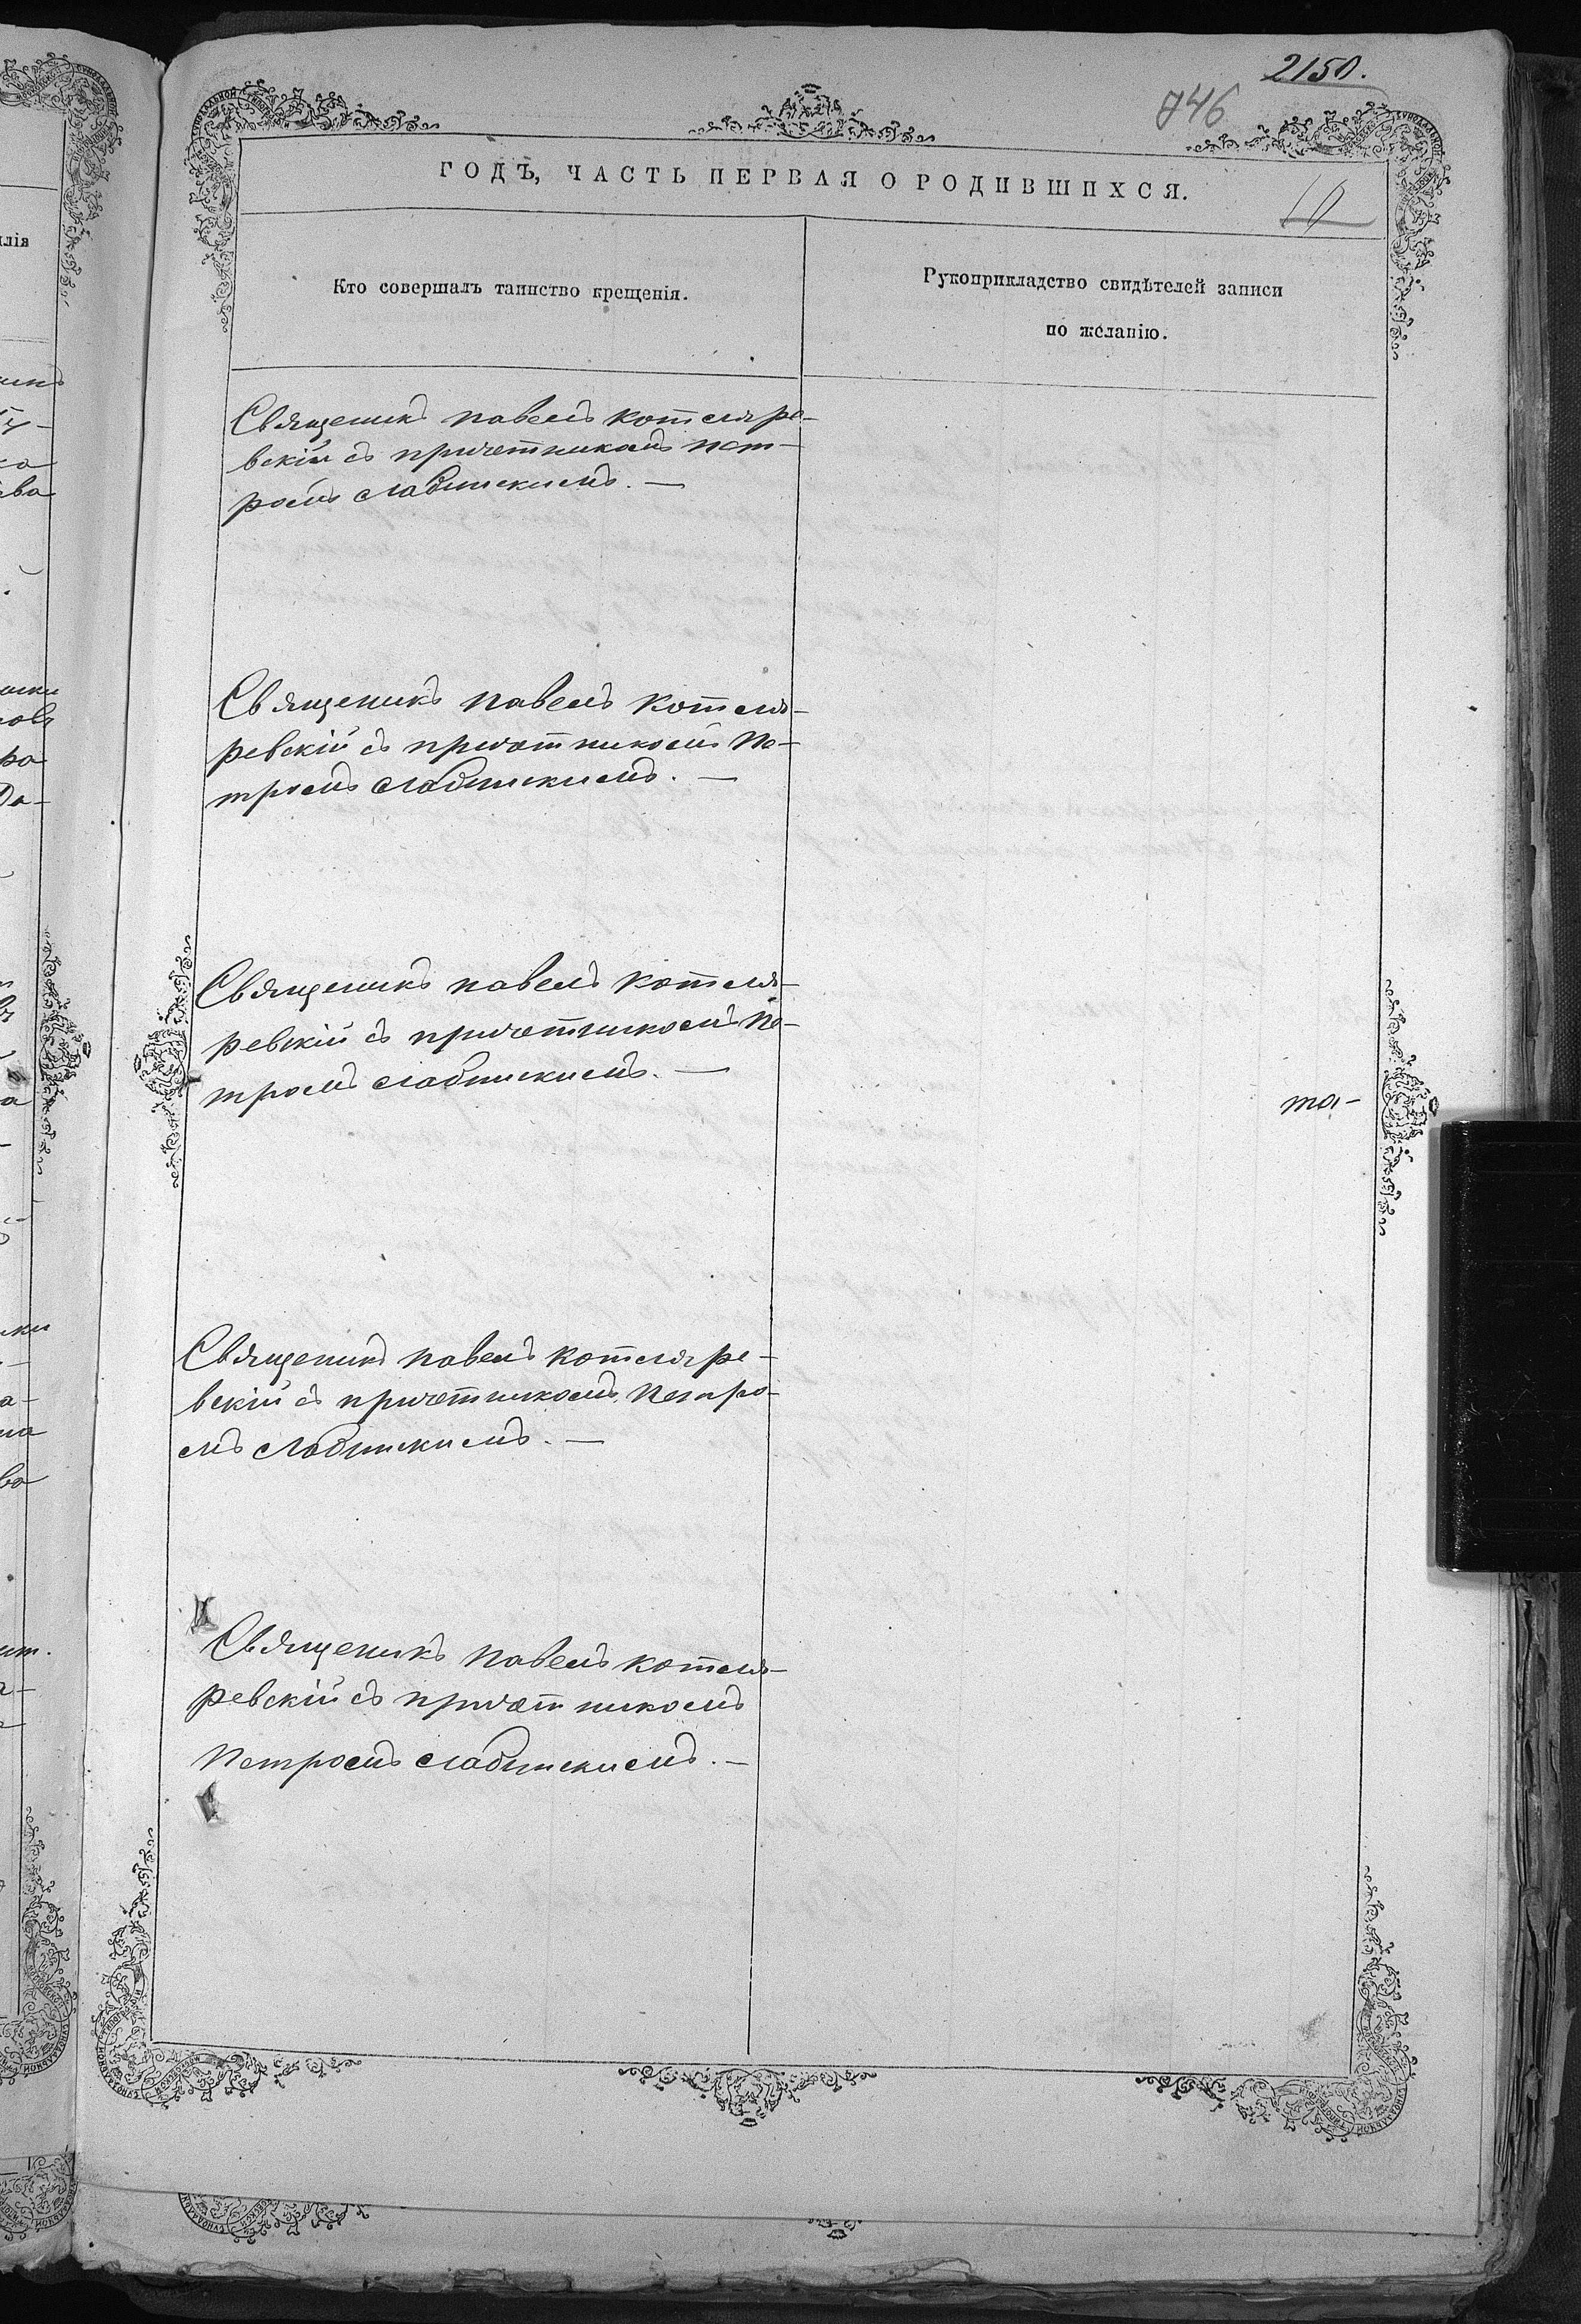 2150.
746
10
ГОДЪ, ЧАСТЬ ПЕРВАЯ О РОДИВШИХСЯ.
Кто совершалъ таинство крещенія.
Рукоприкладство свидѣтелей записи
по желанію.
Священикъ павелъ котляре-
вскій съ причетникомъ пет-
ромъ слабинскимъ. —
Священикъ павелъ котля-
ревскій съ причетникомъ пе-
тромъ слабинскимъ. —
Священикъ павелъ котля-
ревскій съ причетникомъ пе-
тромъ слабинскимъ. —
та-
Священикъ павелъ котляре-
вскій съ причетникомъ петро-
мъ слабинскимъ. —
Священикъ павелъ котля-
ревскій съ причетникомъ
петромъ слабинскимъ. —